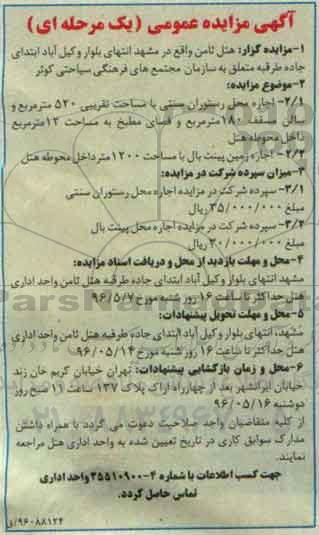 آگهی مزایده عمومی (یک مرحله ای)
۱-مزایده گزار: هتل ثامن واقع در مشهد انتهای بلوار وکیل آباد ابتدای
جاده طرقبه متعلق به سازمان مجتمع های فرهنگی سیاحتی کوثر
۲-موضوع مزایده:
۲/۱- اجاره محل رستوران سنتی با مساحت تقریبی ۵۲۰ مترمربع و
سالن مسقف ۱۸۰مترمربع و فضای مطبخ به مساحت ۱۲مترمربع
داخل محوطه هتل
۲/۲- اجاره زمین پینت بال با مساحت ۱۲۰۰مترداخل محوطه هتل
۳-میزان سپرده شرکت در مزایده:
۳/۱- سپرده شرکت در مزایده اجاره محل رستوران سنتی
مبلغ ۳۵/۰۰۰/۰۰۰ ریال
۳/۲- سپرده شرکت در مزایده اجاره محل پینت بال
مبلغ ۲۰/۰۰۰/۰۰۰ ریال
۴-محل و مهلت بازدید از محل و دریافت اسناد مزایده:
مشهد انتهای بلوار وکیل آباد ابتدای جاده طرقبه هتل ثامن واحد اداری
هتل حداکثر تا ساعت ۱۶ روز شنبه مورخ ۹۶/۵/۷
۵-محل و مهلت تحویل پیشنهادات:
مشهد، انتهای بلوار وکیل آباد ابتدای جاده طرقبه هتل ثامن واحد اداری
هتل حداکثر تا ساعت ۱۶ روز شنبه مورخ ۹۶/۰۵/۱۴
۶-محل و زمان بازگشایی پیشنهادات: تهران خیابان کریم خان زند
خیابان ایرانشهر بعد از چهارراه اراک پلاک ۱۳۷ ساعت ۱۱ صبح روز
دوشنبه ۹۶/۰۵/۱۶
از کلیه متقاضیان واجد صلاحیت دعوت می گردد با همراه داشتن
مدارک سوابق کاری در تاریخ تعیین شده به واحد اداری هتل مراجعه
نمایند.
جهت کسب اطلاعات با شماره ۴-۳۵۵۱۰۹۰۰ واحد اداری
تماس حاصل گردد.
۹۶۰۸۸۱۲۴/ق